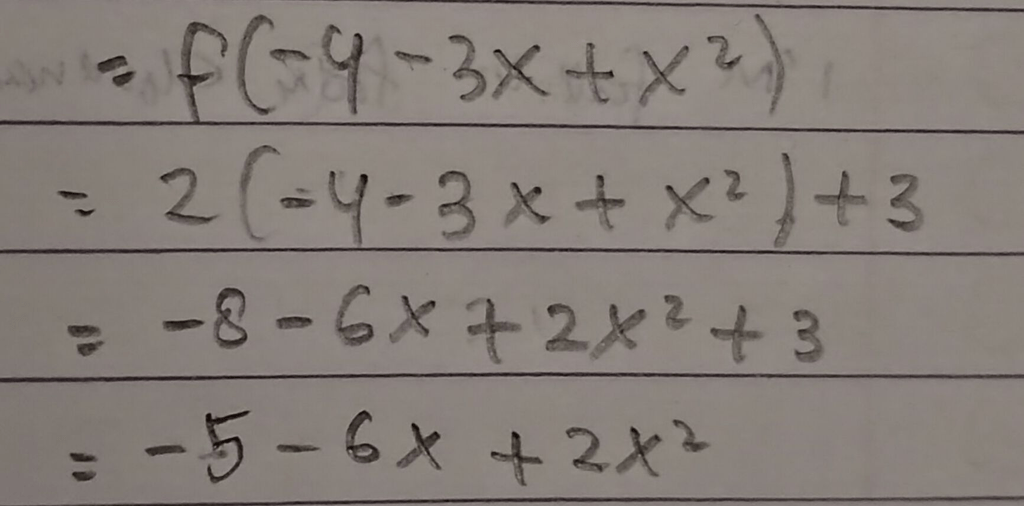 = f(-4-3x+x²)
= 2(-4-3x+x²)+3
= -8-6x+2x²+3
= -5-6x+2x²